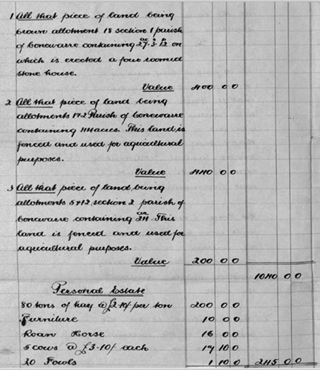 1 All that piece of land being
crown allotment 18 section 1 parish
of boneware containing 27. 3. 12 on
which is erected a four roomed
stone house.
Value 400 0 0
2 All that piece of land being
allotments 1 & 2 Parish of
containing acres. This land is
fenced and used for agricultural
purposes.
Value 0 0
3 All that piece of land being
allotments 5 & 12 section 2 parish of
containing This
land is fenced and used for
agricultural purposes.
Value 200 0 0
1040 0 0
Personal Estate
80 tons of hay @ £2-10/- per ton 200 0 0
Furniture 10 0 0
Roan Horse 16 0 0
5 cows @ £3-10/- each 17 10 0
20 Fowls 1 10 0 245 0 0